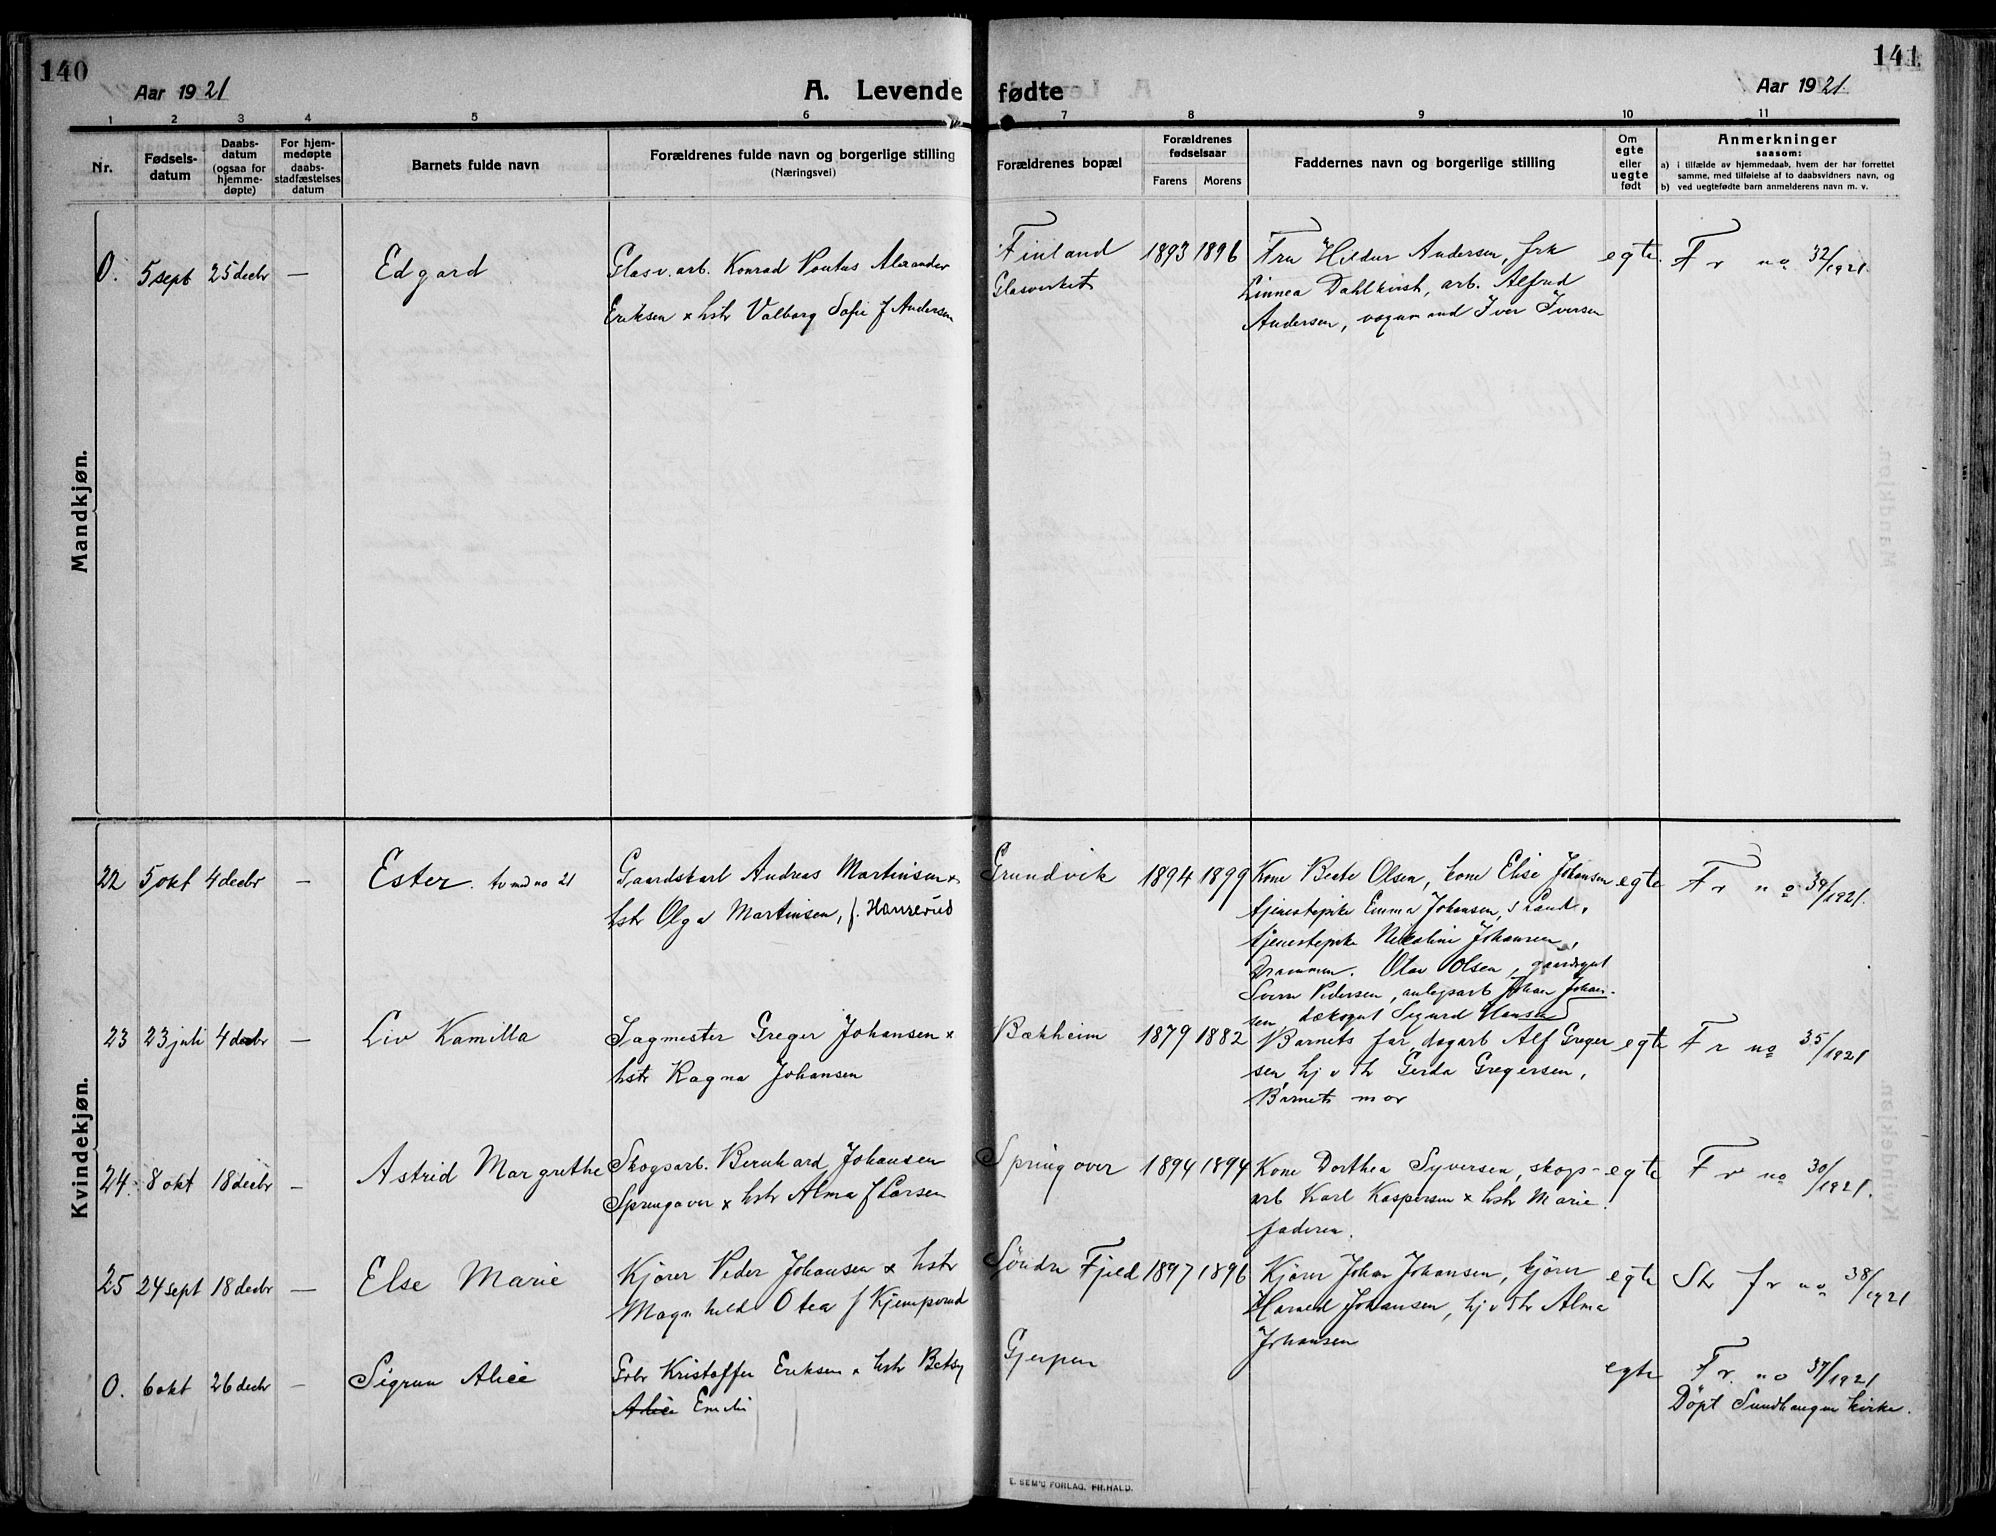 140
Aar 1921
A. Levende fødte
Aar 1921.
141
1 2 3 4 5 6 7 8 9 10 11
Nr.
Fødsels-
datum
Daabs-
datum
(ogsaa for
hjemme-
døpte)
For hjem-
medøpte
daabs-
stadfæstelses
datum
Barnets fulde navn
Forældrenes fulde navn og borgerlige stilling
(Næringsvei)
Forældrenes bopæl
Forældrenes
fødselsaar
Farens Morens
Faddernes navn og borgerlige stilling
Om
egte
eller
uegte
født
Anmerkninger
saasom:
a) i tilfælde av hjemmedaab, hvem der har forrettet
samme, med tilføielse af to daabsvidners navn, og
b) ved uegtefødte barn anmelderens navn m. v.
Mandkjøn.
0. 5 sept 25 decbr — Edgard
Glasv. arb. Konrad Pontus Alexander
Eriksen x hstr Valborg Sofie f Andersen
Finland
Glasverket
1893 1896
Fru Hildur Andersen, frk
Linnea Dahlkvist, arb. Alfred
Andersen, vognmand Iver Iversen
egte. Fr no 32/1921.
Kvindekjøn.
22 5 okt 4 decbr — Ester. tv med no 21
Gaardskarl Andreas Martinsen x
hstr Olga Martinsen, f.
Grundvik 1894 1899
Kone Beate Olsen, kone Elise Johansen
tjenestepike Emma Johansen, Sande,
tjenestepike Nikoline Johansen,
Drammen. Olav Olsen, gaardsgut
Sverre Pedersen, anlegsarb Johan Johan-
sen, dæksgut Sigurd Hansen
egte Fr no 39/1921.
23 23 juli 4 decbr — Liv Kamilla
Sagmester Greger Johansen x
hstr Ragna Johansen
Bækheim 1879 1882
Barnets far, dagarb Alf Greger
sen, hj v th Gerda Gregersen,
Barnets mor
egte Fr no 35/1921
24. 8 okt 18 decbr — Astrid Margrethe
Skogsarb. Bernhard Johansen
Springover x hstr Alma f Larsen
Springover 1894 1894
Kone Dorthea Syversen, skogs-
arb Karl Kaspersen x hstr Marie.
faderen.
egte Fr no 30/1921.
25 24 sept 18 decbr — Else Marie
Kjører Peder Johansen x hstr
Magnhild Otea f Kjemperud
Søndre Fjeld 1897 1896
Kjører Johan Johansen, kjører
Harald Johansen, hj v th Alma
Johansen
egte Str fr no 38/1921
0. 6 okt 26 decbr — Sigrun Alice
Gbr Kristoffer Eriksen x hstr Betsy
Alice Emilie
Gjerpen
egte Fr. no 37/1921
Döpt Sundhaugen kirke.
E. SEM'S FORLAG. FR.HALD.